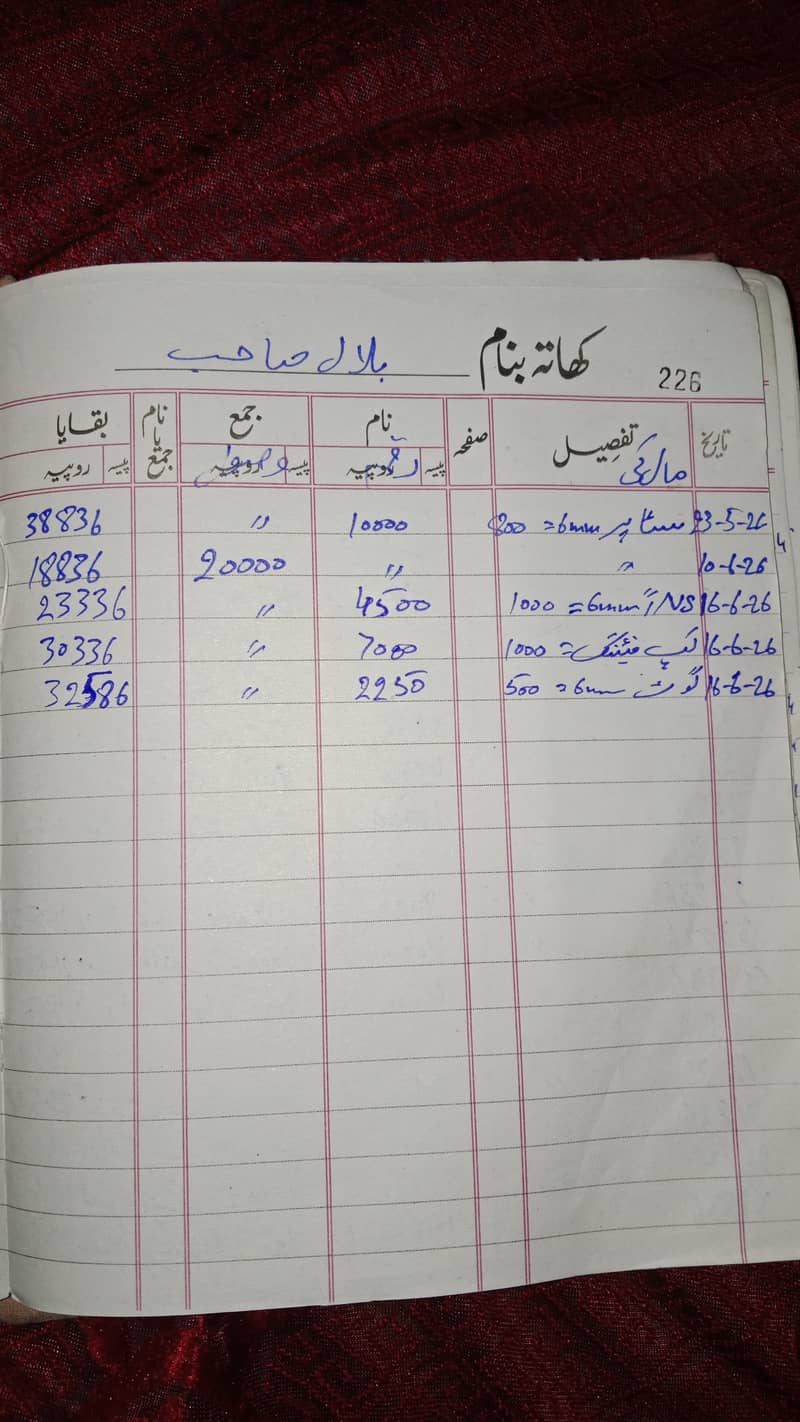 226 کھاتہ بنام بلال صاحب
تاریخ تفصیل صفحہ نام جمع نام یا جمع بقایا
مال کی رقم وصولی
پیسہ روپیہ پیسہ روپیہ پیسہ روپیہ
23-5-26 سٹاپر 6mm = 800 10000 " 38836
10-6-26 " " 20000 18836
16-6-26 6mm = 1000 4500 " 23336
16-6-26 کپ فیٹنگ = 1000 7000 " 30336
16-6-26 گوٹ 6mm = 500 2250 " 32586